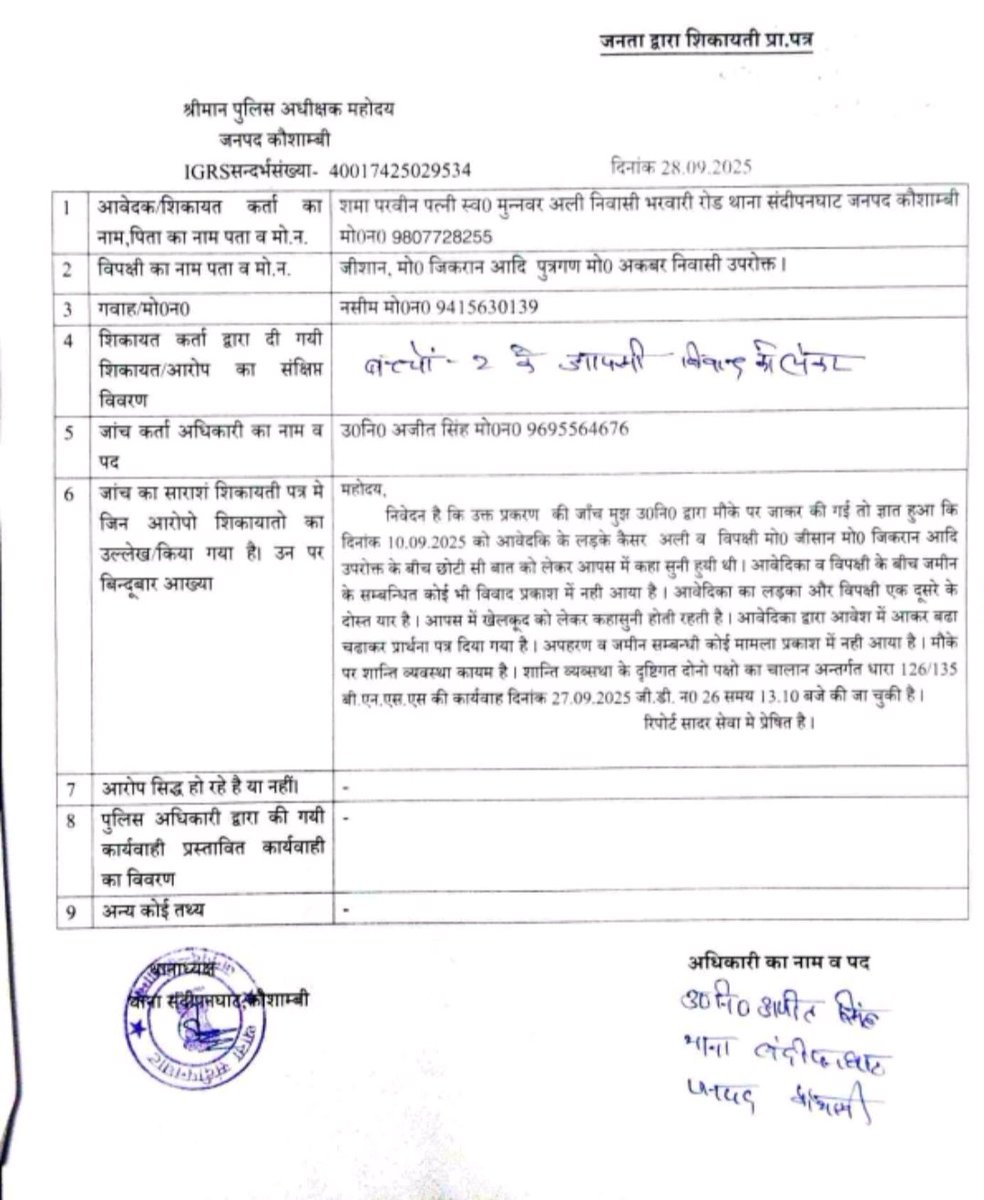 जनता द्वारा शिकायती प्रा.पत्र
श्रीमान पुलिस अधीक्षक महोदय
जनपद कौशाम्बी
IGRSसन्दर्भसंख्या- 40017425029534
दिनांक 28.09.2025
1
आवेदक/शिकायत कर्ता का
नाम,पिता का नाम पता व मो.न.
शमा परवीन पत्नी स्व0 मुन्नवर अली निवासी भरवारी रोड थाना संदीपनघाट जनपद कौशाम्बी
मो0न0 9807728255
2
विपक्षी का नाम पता व मो.न.
जीशान, मो0 जिकरान आदि पुत्रगण मो0 अकबर निवासी उपरोक्त।
3
गवाह/मो0न0
नसीम मो0न0 9415630139
4
शिकायत कर्ता द्वारा दी गयी
शिकायत/आरोप का संक्षिप्त
विवरण
बच्चों-2 के आपसी विवाद को लेकर
5
जांच कर्ता अधिकारी का नाम व
पद
उ0नि0 अजीत सिंह मो0न0 9695564676
6
जांच का साराशं शिकायती पत्र मे
जिन आरोपो शिकायातो का
उल्लेख/किया गया है। उन पर
बिन्दूबार आख्या
महोदय,
निवेदन है कि उक्त प्रकरण की जाँच मुझ उ0नि0 द्वारा मौके पर जाकर की गई तो ज्ञात हुआ कि
दिनांक 10.09.2025 को आवेदकि के लड़के कैसर अली व विपक्षी मो0 जीसान मो0 जिकरान आदि
उपरोक्त के बीच छोटी सी बात को लेकर आपस में कहा सुनी हुयी थी। आवेदिका व विपक्षी के बीच जमीन
के सम्बन्धित कोई भी विवाद प्रकाश में नही आया है। आवेदिका का लड़का और विपक्षी एक दूसरे के
दोस्त यार है। आपस में खेलकूद को लेकर कहासुनी होती रहती है। आवेदिका द्वारा आवेश में आकर बढा
चढाकर प्रार्थना पत्र दिया गया है। अपहरण व जमीन सम्बन्धी कोई मामला प्रकाश में नही आया है। मौके
पर शान्ति व्यवस्था कायम है। शान्ति व्यव्सथा के दृष्टिगत दोनो पक्षो का चालान अन्तर्गत धारा 126/135
बी.एन.एस.एस की कार्यवाह दिनांक 27.09.2025 जी.डी. न0 26 समय 13.10 बजे की जा चुकी है।
रिपोर्ट सादर सेवा मे प्रेषित है।
7
आरोप सिद्ध हो रहे है या नहीं।
-
8
पुलिस अधिकारी द्वारा की गयी
कार्यवाही प्रस्तावित कार्यवाही
का विवरण
-
9
अन्य कोई तथ्य
-
थानाध्यक्ष
थाना संदीपनघाट,कौशाम्बी
थाना संदीपनघाट
अधिकारी का नाम व पद
उ0नि0 अजीत सिंह
थाना संदीपनघाट
जनपद कौशाम्बी